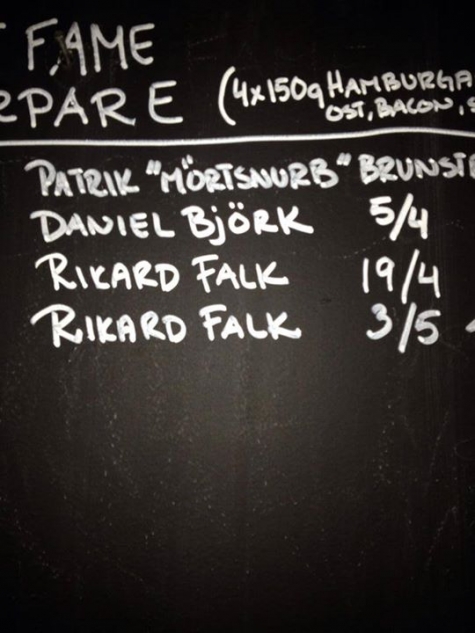 FAME
RPARE (4x150g HAMBURGA
OST, BACON,
PATRIK "MÖRTSNURB" BRUNSTE
DANIEL BJÖRK 5/4
RIKARD FALK 19/4
RIKARD FALK 3/5